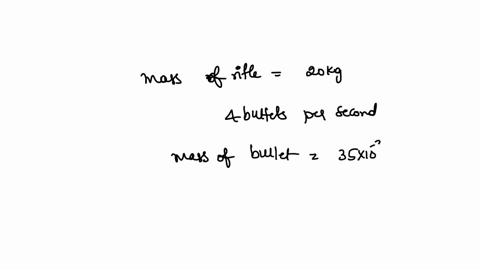 mass of rifle = 20kg
4 bullets per second
mass of bullet = 35x10